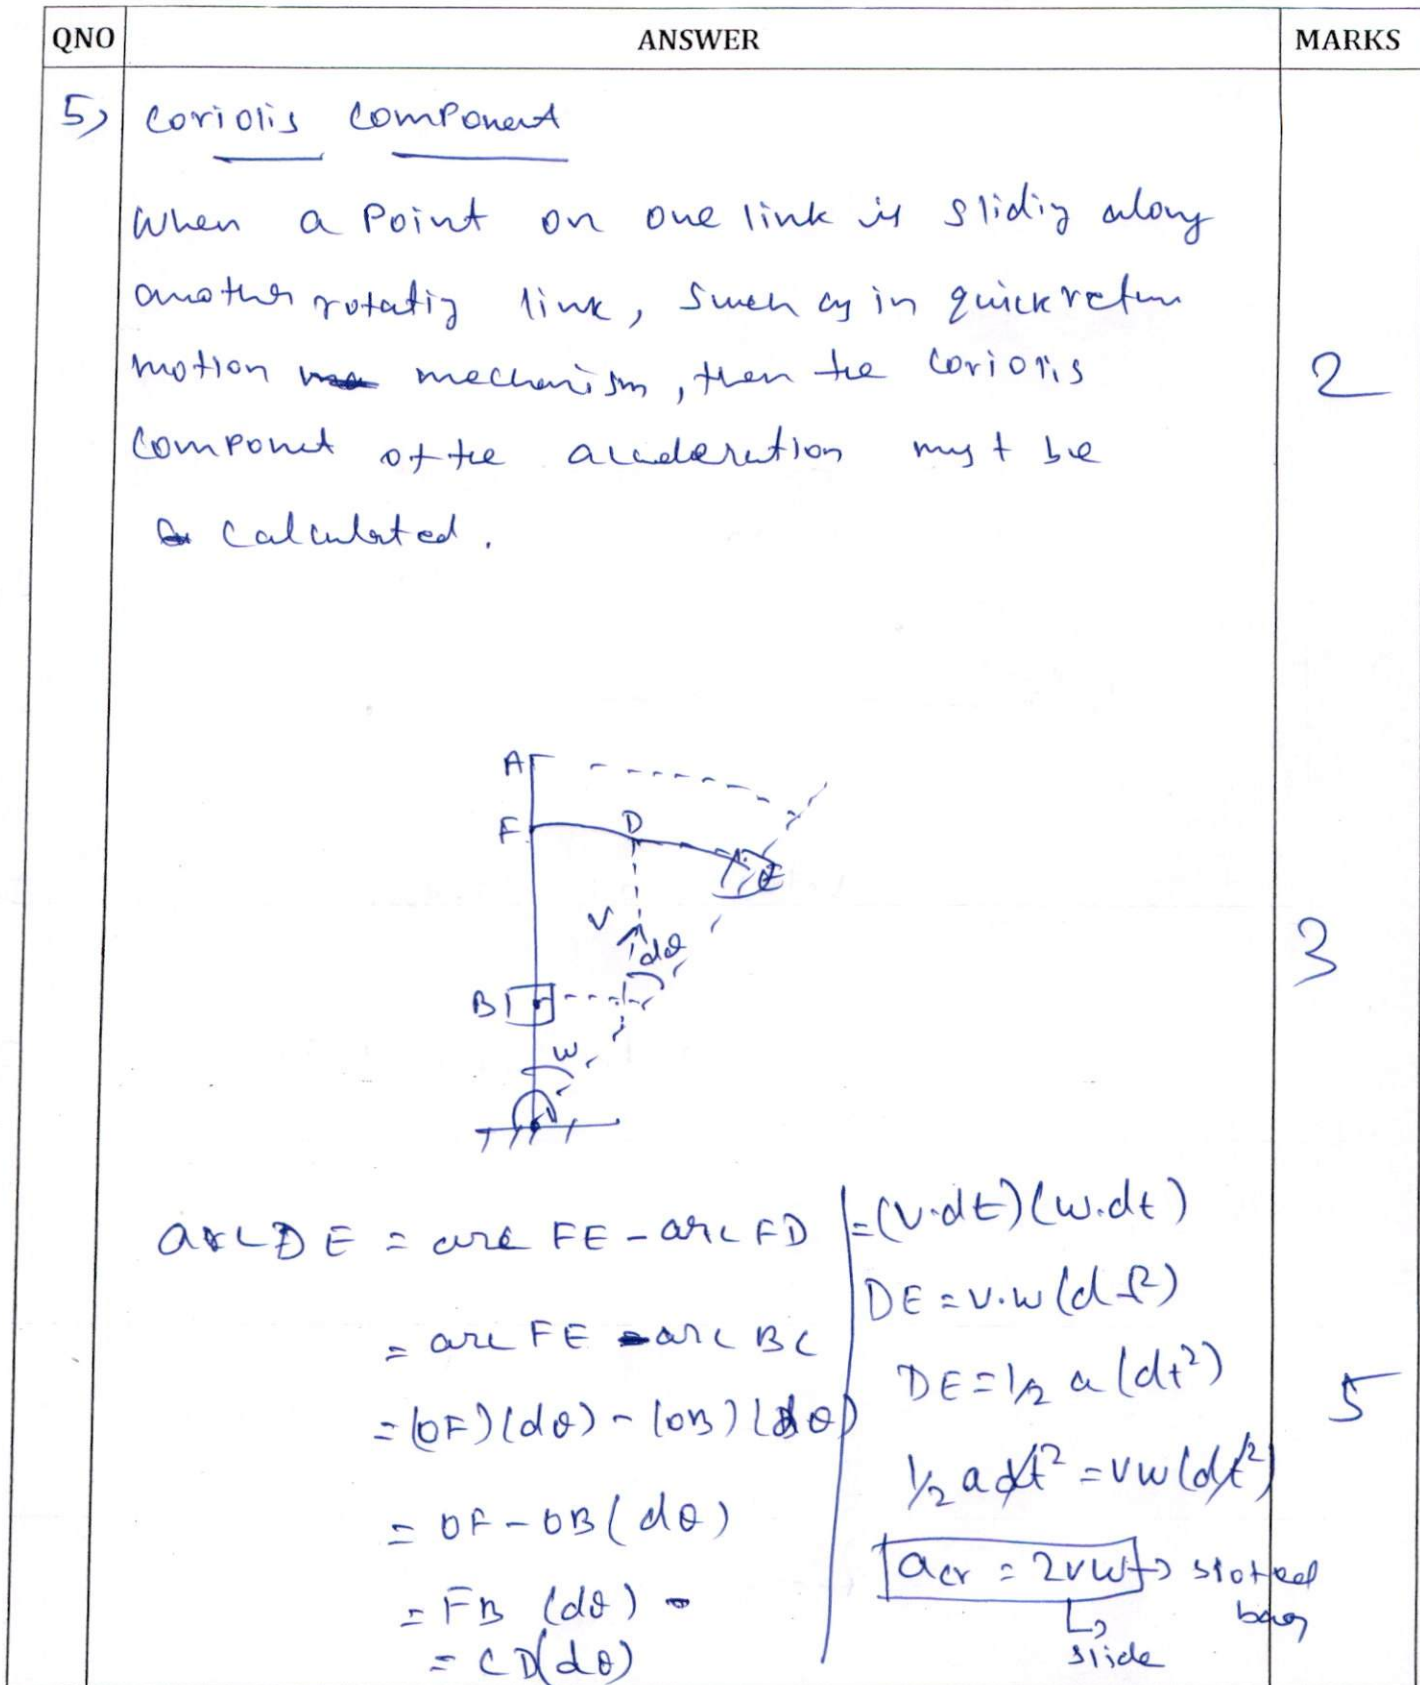 QNO ANSWER MARKS
5) Coriolis Component
When a Point on one link is slidig along
another rotatig link, such as in quick return
motion mechanism, then the Coriolis
Component of the acceleration must be
calculated.
2
A
F D
E
V
dθ
B
W
3
arc DE = arc FE - arc FD
= arc FE - arc BC
= (OF)(dθ) - (OB)(dθ)
= OF - OB(dθ)
= FB (dθ)
= CD(dθ)
= (V.dt)(W.dt)
DE = V.W(dt²)
DE = 1/2 a (dt²)
1/2 a dt² = VW(dt²)
acr = 2VW → slotted
bar
↳ slide
5